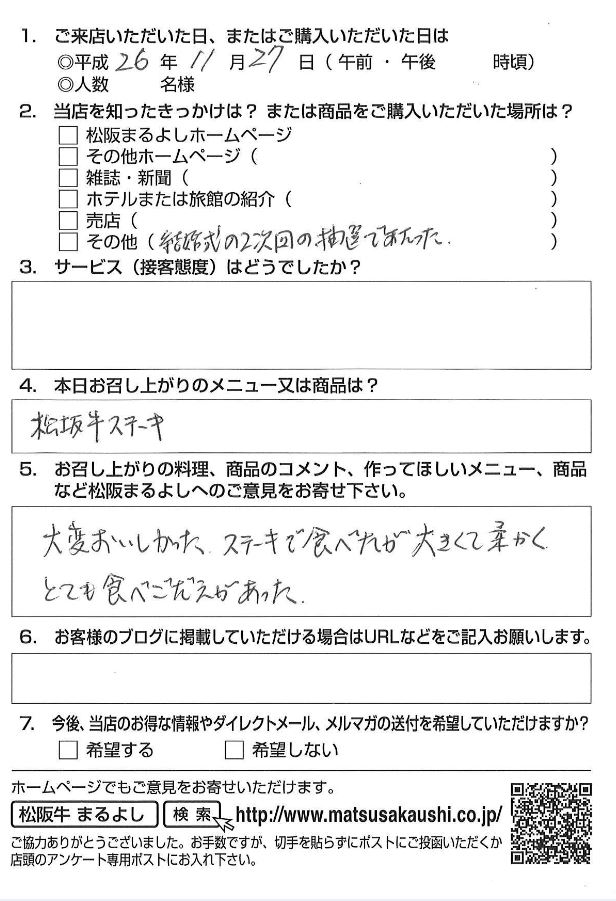 1. ご来店いただいた日、またはご購入いただいた日は
◎平成 26 年 11 月 27 日（午前・午後　　　時頃）
◎人数　　　名様
2. 当店を知ったきっかけは？ または商品をご購入いただいた場所は？
□ 松阪まるよしホームページ
□ その他ホームページ（　　　）
□ 雑誌・新聞（　　　）
□ ホテルまたは旅館の紹介（　　　）
□ 売店（　　　）
□ その他（結婚式の2次回の抽選であたった.　）
3. サービス（接客態度）はどうでしたか？
4. 本日お召し上がりのメニュー又は商品は？
松坂牛ステーキ
5. お召し上がりの料理、商品のコメント、作ってほしいメニュー、商品
など松阪まるよしへのご意見をお寄せ下さい。
大変おいしかった、ステーキで食べたが大きくて柔かく
とても食べごたえがあった.
6. お客様のブログに掲載していただける場合はURLなどをご記入お願いします。
7. 今後、当店のお得な情報やダイレクトメール、メルマガの送付を希望していただけますか？
□ 希望する　□ 希望しない
ホームページでもご意見をお寄せいただけます。
松阪牛 まるよし　検索　http://www.matsusakaushi.co.jp/
ご協力ありがとうございました。お手数ですが、切手を貼らずにポストにご投函いただくか
店頭のアンケート専用ポストにお入れ下さい。